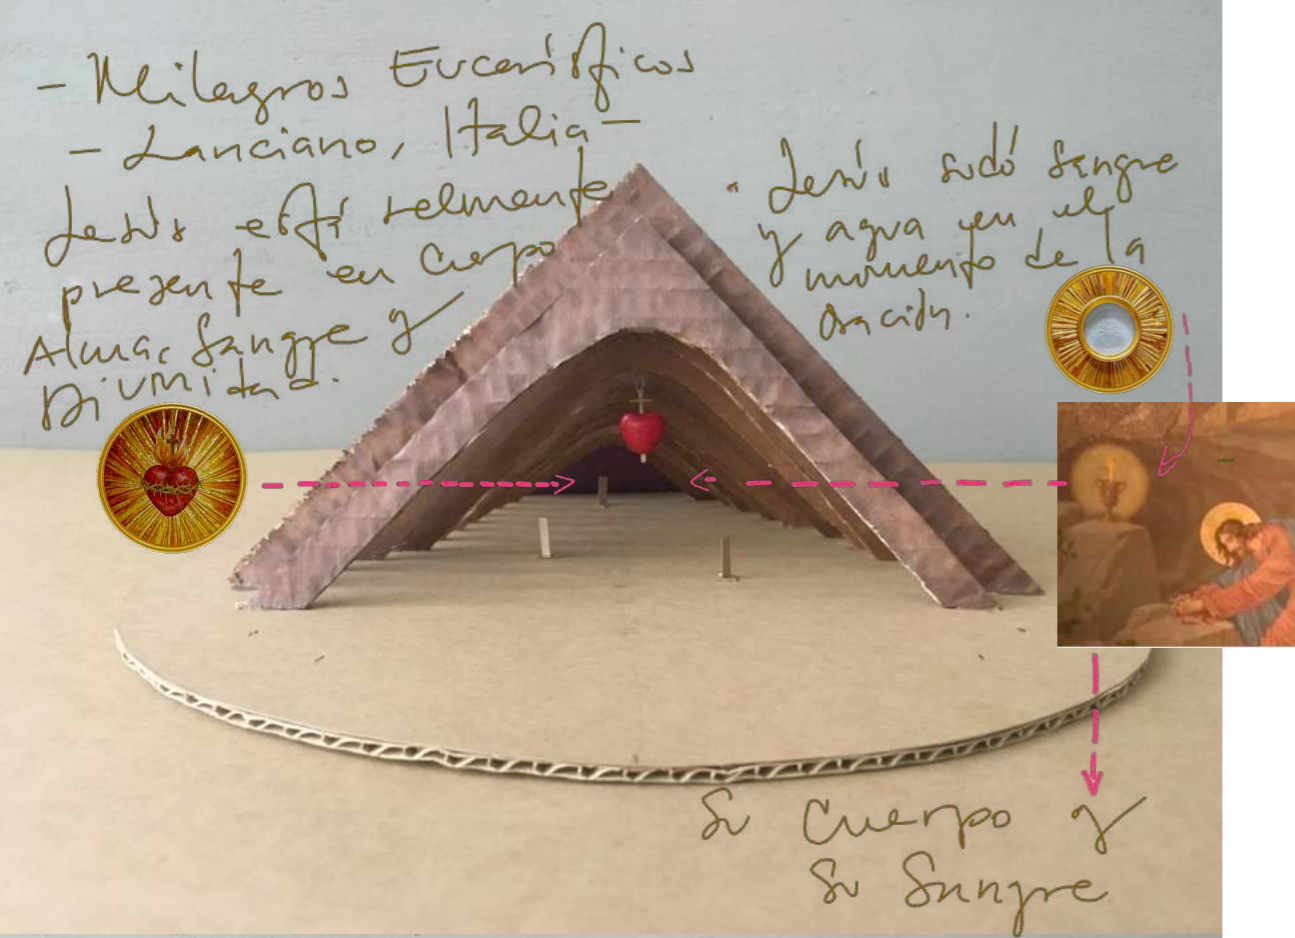 - Milagros Eucarísticos
- Lanciano, Italia -
Jesús está relmente
presente en Cuerpo
Alma, Sangre y
Divinidad.
• Jesús sudó Sangre
y agua en el
momento de la
oración.
Su Cuerpo y
Su Sangre